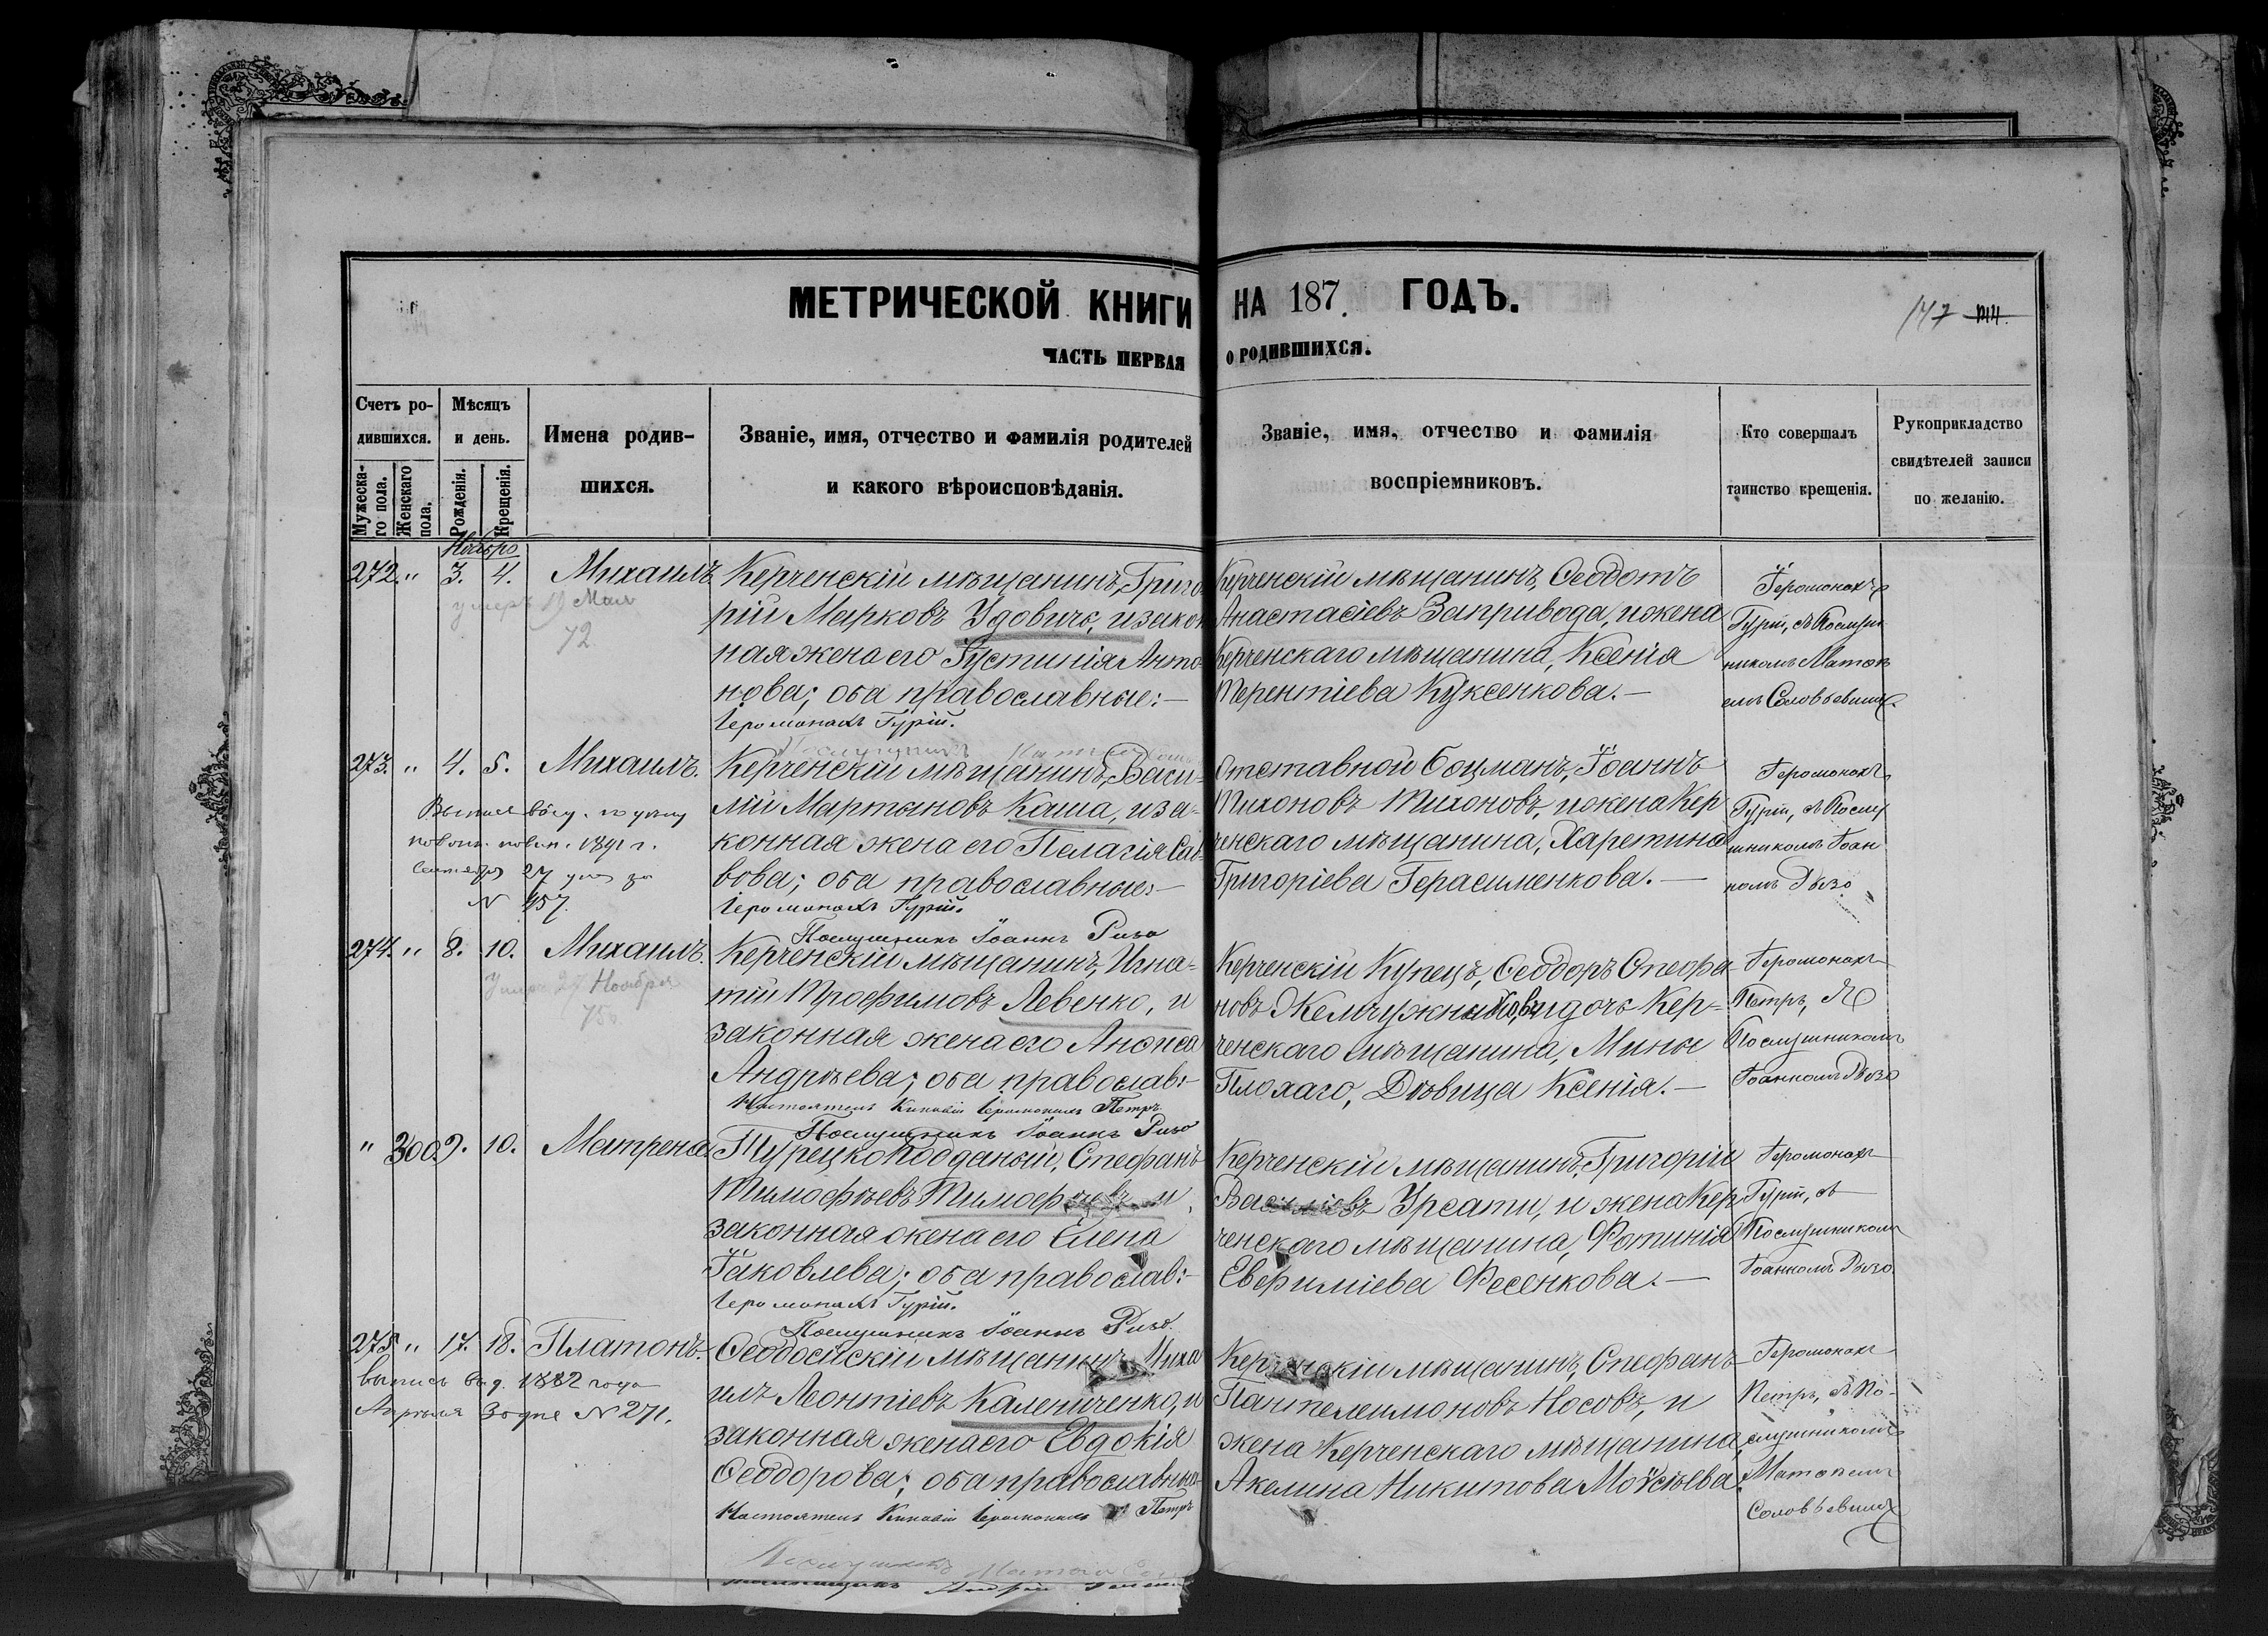 МЕТРИЧЕСКОЙ КНИГИ НА 187 . ГОДЪ.
147 144.
ЧАСТЬ ПЕРВАЯ О РОДИВШИХСЯ.
Счетъ ро-
дившихся.
Мужеска-
го пола.
Женскаго
пола.
Мѣсяцъ
и день.
Рожденія.
Крещенія.
Имена родив-
шихся.
Званіе, имя, отчество и фамилія родителей
и какого вѣроисповѣданія.
Званіе, имя, отчество и фамилія
воспріемниковъ.
Кто совершалъ
таинство крещенія.
Рукоприкладство
свидѣтелей записи
по желанію.
Ноябрь
272. " 3. 4. Михаилъ
умеръ 19 Мая
72
Керченскій мѣщанинъ, Григо-
рій Марковъ Удовичъ, и закон
ная жена его Іустинія Анто-
нова; оба православные:—
Іеромонахъ Гурій.
Послушникъ
Керченскій мѣщанинъ, Ѳеодотъ
Анастасіевъ Запривода, и жена
Керченскаго мѣщанина, Ксенія
Терентіева Куксенкова.—
Іеромонахъ
Гурій, съ Послуш
никомъ Матѳѣ
емъ Соловьевымъ.
273. " 4. 5. Михаилъ.
1891 г.
27
N 457.
Керченскій мѣщанинъ, Васи-
лій Мартыновъ Каша, и за-
конная жена его Пелагія Сав-
вова; оба православные:—
Іеромонахъ Гурій.
Послушникъ Іоаннъ Ризо
Отставной боцманъ, Іоаннъ
Тихоновъ Тихоновъ, и жена Кер
ченскаго мѣщанина, Харетина
Григоріева Герасименкова.—
Іеромонахъ
Гурій, съ Послу
шникомъ Іоан
номъ Ризо
274. " 8. 10. Михаилъ.
Умеръ 27 Ноября
Керченскій мѣщанинъ, Игна-
тій Трофимовъ Левенко, и
законная жена его Анѳиса
Андрѣева; оба православ:—
Настоятель Киновіи Іеромонахъ Петръ.
Послушникъ Іоаннъ Ризо
Керченскій Купецъ, Ѳеодоръ Стефа-
новъ Жемчужниковъ, и дочь Кер-
ченскаго мѣщанина, Мины
Плохаго, Дѣвица Ксенія.—
Іеромонахъ
Петръ, съ
Послушникомъ
Іоанномъ Ризо
" 300. 9. 10. Матрена.
Турецкоподданый, Стефанъ
Тимофѣевъ Тимофѣевъ и
законная жена его Елена
Іаковлева; оба православ:—
Іеромонахъ Гурій.
Послушникъ Іоаннъ Ризо.
Керченскій мѣщанинъ, Григорій
Васильевъ Урсати, и жена Кер
ченскаго мѣщанина, Фотинія
Евфиміева Фесенкова.—
Іеромонахъ
Гурій, съ
Послушникомъ
Іоанномъ Ризо.
275 " 17. 18. Платонъ.
выпись выд. 1882 года
Апрѣля 30 дня N 271.
Ѳеодосійскій мѣщанинъ, Миха
илъ Леонтіевъ Калениченко, и
законная жена его Евдокія
Ѳеодорова; оба православные
Настоятель Киновіи Іеромонахъ Петръ
Послушникъ Матѳей
Керченскій мѣщанинъ, Стефанъ
Пантелеимоновъ Носовъ, и
жена Керченскаго мѣщанина,
Акелина Никитова Моѵсѣева.
Іеромонахъ
Петръ, съ По-
слушникомъ
Матѳѣемъ
Соловьевымъ